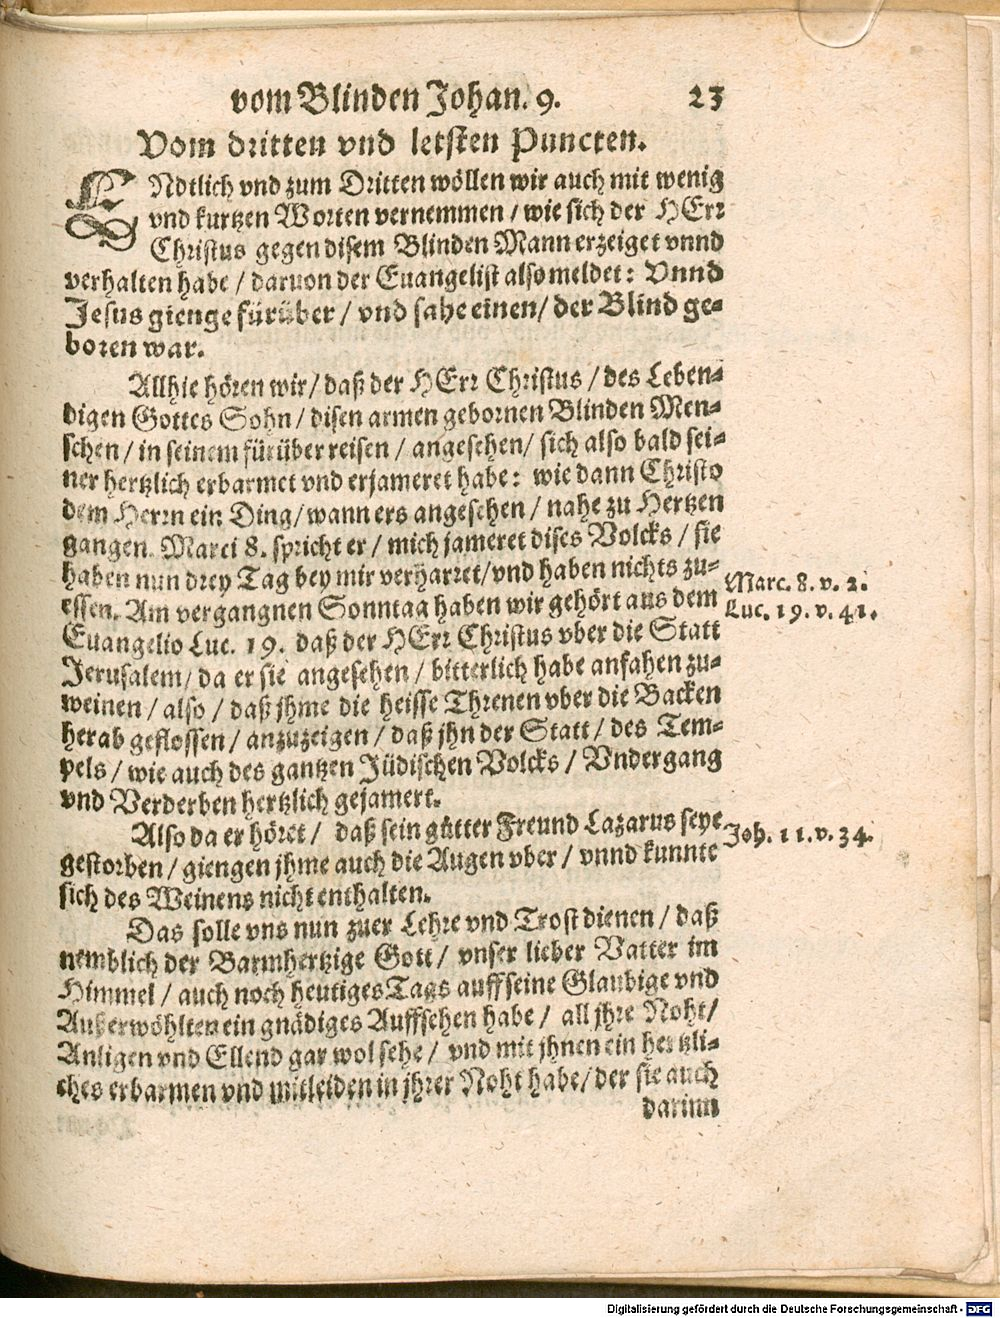 vom Blinden Johan. 9. 23
Vom dritten vnd letsten Puncten.
ENdtlich vnd zum Dritten wöllen wir auch mit wenig
vnd kurtzen Worten vernemmen / wie sich der HErr
Christus gegen disem Blinden Mann erzeiget vnnd
verhalten habe / daruon der Euangelist also meldet: Vnnd
Jesus gienge fürüber / vnd sahe einen / der Blind ge-
boren war.
Allhie hören wir / daß der HErr Christus / des Leben-
digen Gottes Sohn / disen armen gebornen Blinden Men-
schen / in seinem fürüber reisen / angesehen / sich also bald sei-
ner hertzlich erbarmet vnd erjameret habe: wie dann Christo
dem Herrn ein Ding / wann ers angesehen / nahe zu Hertzen
gangen. Marci 8. spricht er / mich jameret dises Volcks / sie
haben nun drey Tag bey mir verharret / vnd haben nichts zu-
essen. Am vergangnen Sonntag haben wir gehört aus dem
Euangelio Luc. 19. daß der HErr Christus vber die Statt
Jerusalem / da er sie angesehen / bitterlich habe anfahen zu-
weinen / also / daß jhme die heisse Threnen vber die Backen
herab geflossen / anzuzeigen / daß jhn der Statt / des Tem-
pels / wie auch des gantzen Jüdischen Volcks / Vndergang
vnd Verderben hertzlich gejamert.
Also da er höret / daß sein gůtter Freund Lazarus seye
gestorben / giengen jhme auch die Augen vber / vnnd kunnte
sich des Weinens nicht enthalten.
Das solle vns nun zuer Lehre vnd Trost dienen / daß
nemblich der Barmhertzige Gott / vnser lieber Vatter im
Himmel / auch noch heutiges Tags auff seine Glaubige vnd
Außerwöhlten ein gnädiges Auffsehen habe / all jhre Noht /
Anligen vnd Ellend gar wol sehe / vnd mit jhnen ein hertzli-
ches erbarmen vnd mitleiden in jhrer Noht habe / der sie auch
darinn
Marc. 8. v. 2.
Luc. 19. v. 41.
Joh. 11. v. 34.
Digitalisierung gefördert durch die Deutsche Forschungsgemeinschaft - DFG